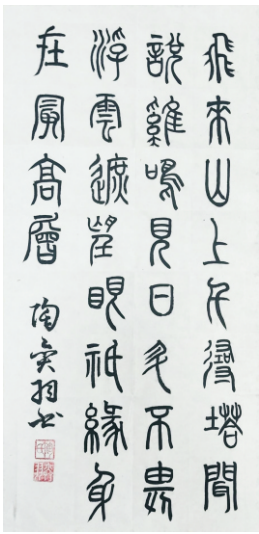 飛來山上千尋塔聞
說雞鳴見日升不畏
浮雲遮望眼祗緣身
在最高層
陶书